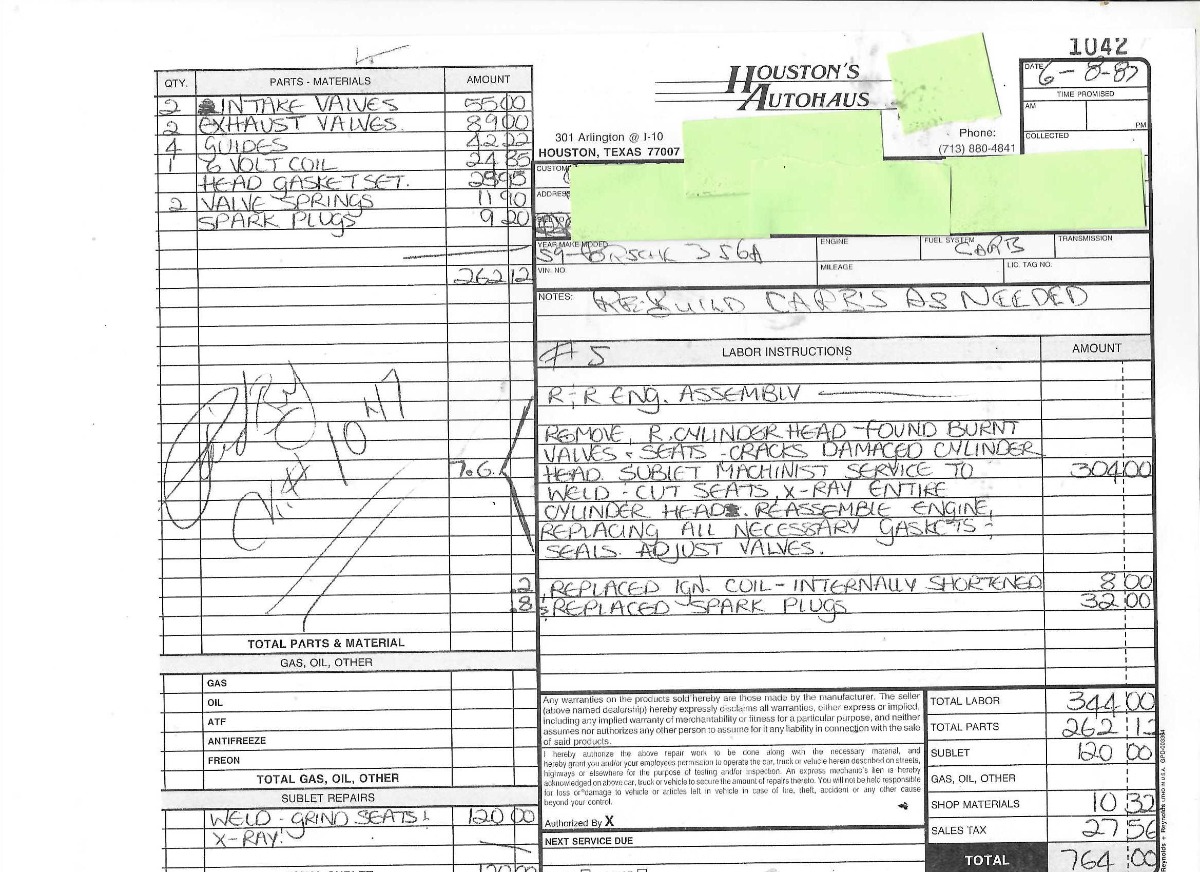 1042
QTY. PARTS - MATERIALS AMOUNT
2 INTAKE VALVES 55 00
2 EXHAUST VALVES 89 00
4 GUIDES 42 22
1 6 VOLT COIL 24 85
HEAD GASKET SET. 29 95
2 VALVE SPRINGS 11 90
SPARK PLUGS 9 20
262 12
TOTAL PARTS & MATERIAL
GAS, OIL, OTHER
GAS
OIL
ATF
ANTIFREEZE
FREON
TOTAL GAS, OIL, OTHER
SUBLET REPAIRS
WELD - GRIND SEATS 120 00
X-RAY
120 00
HOUSTON'S
AUTOHAUS
301 Arlington @ I-10
HOUSTON, TEXAS 77007
Phone:
(713) 880-4841
DATE 6-8-87
TIME PROMISED
AM
PM
COLLECTED
ADDRESS
YEAR MAKE MODEL
59- PORSCHE 356A
ENGINE
FUEL SYSTEM
CARB
TRANSMISSION
VIN. NO
MILEAGE
LIC. TAG NO.
NOTES: RE-BUILD CARB'S AS NEEDED
#5 LABOR INSTRUCTIONS AMOUNT
R & R ENG. ASSEMBLY
REMOVE R. CYLINDER HEAD - FOUND BURNT
VALVES & SEATS - CRACKS DAMAGED CYLINDER
7.6 HEAD. SUBLET MACHINIST SERVICE TO 304 00
WELD - CUT SEATS, X-RAY ENTIRE
CYLINDER HEAD. REASSEMBLE ENGINE,
REPLACING ALL NECESSARY GASKETS &
SEALS. ADJUST VALVES.
.2 REPLACED IGN. COIL - INTERNALLY SHORTENED 8 00
.8 REPLACED SPARK PLUGS 32 00
Any warranties on the products sold hereby are those made by the manufacturer. The seller
(above named dealership) hereby expressly disclaims all warranties, either express or implied,
including any implied warranty of merchantability or fitness for a particular purpose, and neither
assumes nor authorizes any other person to assume for it any liability in connection with the sale
of said products.
I hereby authorize the above repair work to be done along with the necessary material, and
hereby grant you and/or your employees permission to operate the car, truck or vehicle herein described on streets,
highways or elsewhere for the purpose of testing and/or inspection. An express mechanic's lien is hereby
acknowledged on above car, truck or vehicle to secure the amount of repairs thereto. You will not be held responsible
for loss or damage to vehicle or articles left in vehicle in case of fire, theft, accident or any other cause
beyond your control.
Authorized By X
NEXT SERVICE DUE
TOTAL LABOR 344 00
TOTAL PARTS 262 12
SUBLET 120 00
GAS, OIL, OTHER
SHOP MATERIALS 10 32
SALES TAX 27 56
TOTAL 764 00